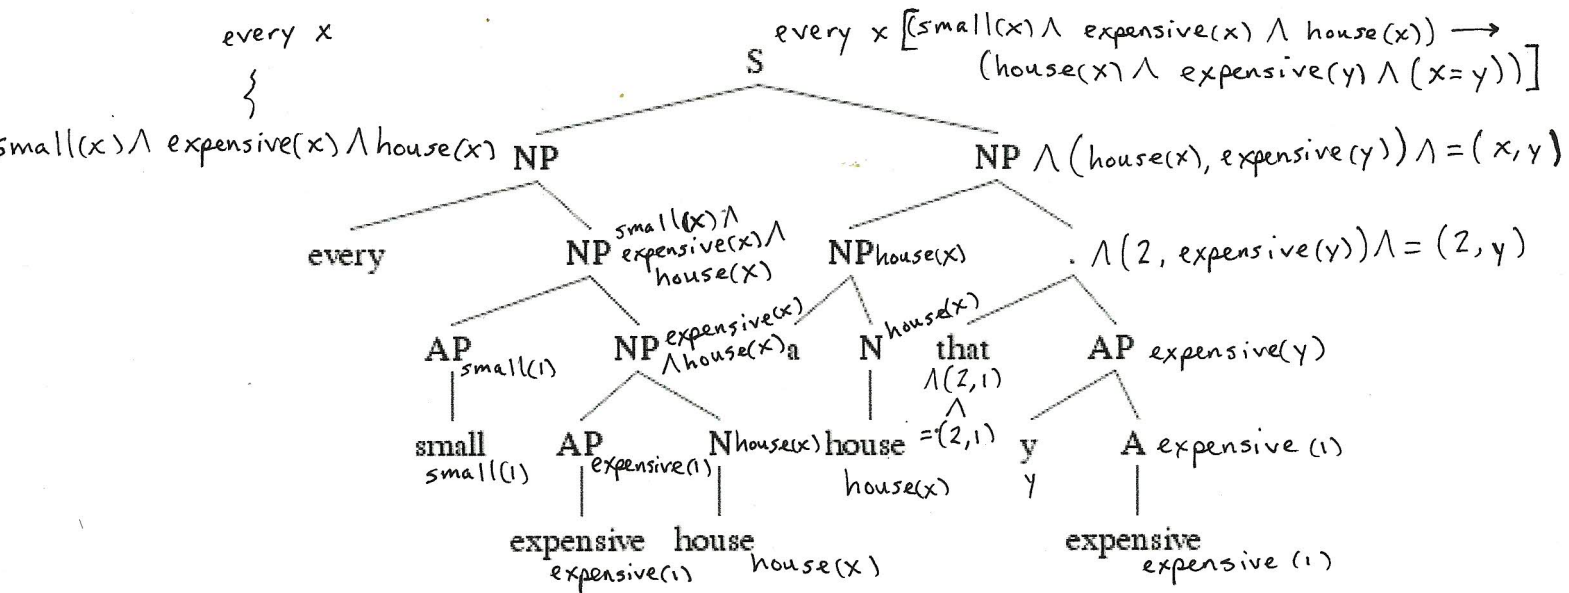 every x
every x [(small(x) ∧ expensive(x) ∧ house(x)) →
S
(house(x) ∧ expensive(y) ∧ (x=y))]
small(x) ∧ expensive(x) ∧ house(x) NP
NP ∧(house(x), expensive(y)) ∧ =(x,y)
every
NP small(x) ∧
expensive(x) ∧
house(x)
NP house(x)
. ∧(2, expensive(y)) ∧ = (2,y)
AP small(1)
NP expensive(x)
∧ house(x)
a
N house(x)
that
∧(2,1)
∧
=(2,1)
AP expensive(y)
small
small(1)
AP expensive(1)
N house(x)
house
house(x)
y
y
A expensive (1)
expensive
expensive(1)
house
house(x)
expensive
expensive (1)